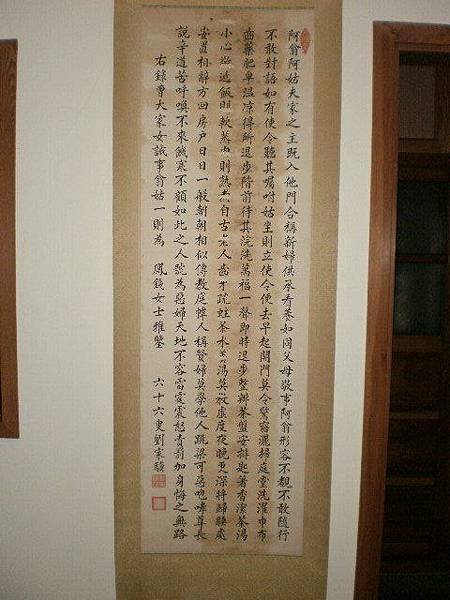 阿翁阿姑夫家之主既入他門合稱新婦供承看養如同父母敬事阿翁形容不覩不敢隨行
不敢對語如有使令聽其囑咐姑坐則立使令便去早起開門莫令驚窹灑掃庭堂洗濯巾布
齒藥肥皁温凉得所退步階前待其浣洗萬福一聲即時退步整辦茶盤安排匙箸香潔茶湯
小心遞飯則軟蒸肉則熟煮自古老人齒牙疏蛀茶水羹湯莫教虛度夜晚更深將歸睡處
安置相辭方回房户日日一般朝朝相似傳教庭幃人稱賢婦莫學他人跳梁可惡咆哮尊長
說辛道苦呼喚不來饑寒不顧如此之人號為惡婦天地不容雷霆震怒責罰加身悔之無路
右錄曹大家女誡事翁姑一則為 鳳錢女士雅鑒 六十六叟劉家驥